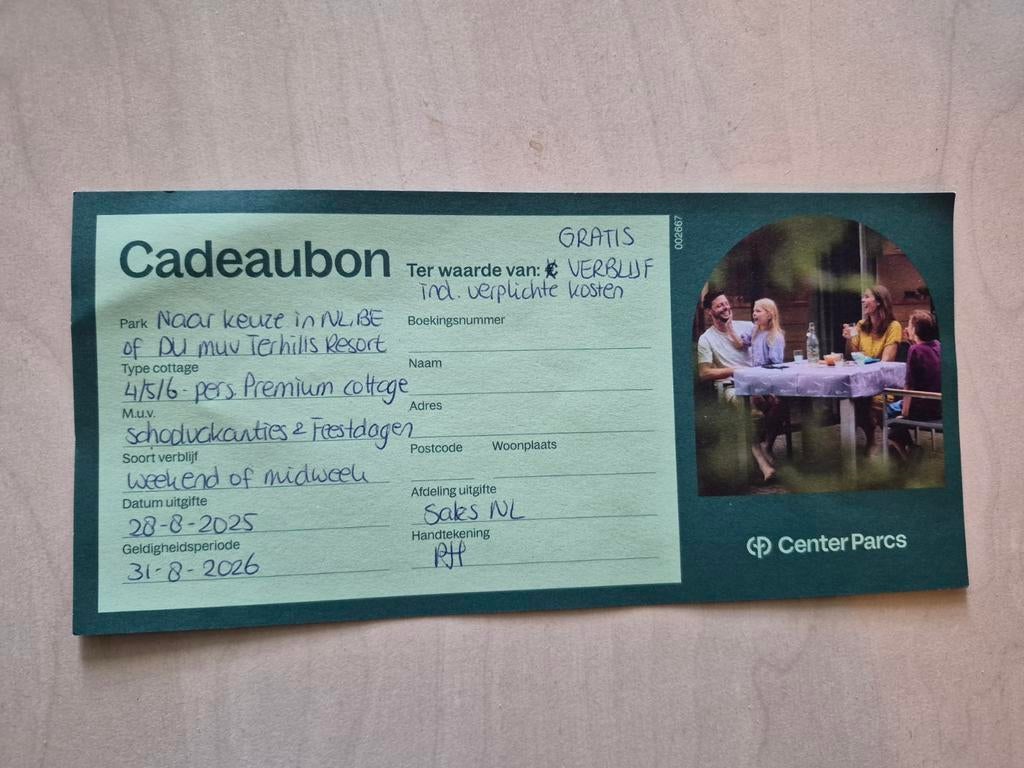 Cadeaubon
Park Naar keuze in NL, BE
of DU muv Terhills Resort
Type cottage
4/5/6-pers. Premium cottage
M.u.v.
Schoolvakanties & Feestdagen
Soort verblijf
weekend of midweek
Datum uitgifte
28-8-2025
Geldigheidsperiode
31-8-2026
GRATIS
Ter waarde van: € VERBLIJF
incl. verplichte kosten
Boekingsnummer
Naam
Adres
Postcode Woonplaats
Afdeling uitgifte
Sales NL
Handtekening
002667
Center Parcs